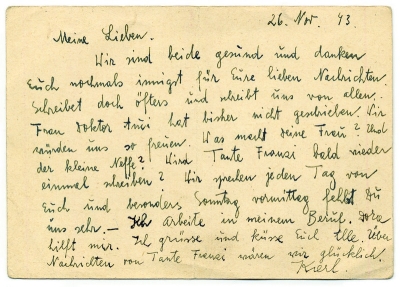 26. Nov. 43.
Meine Lieben.
Wir sind beide gesund und danken
Euch nochmals innigst für Eure lieben Nachrichten
Schreibet doch öfters und schreibt uns von allen.
Frau Doktor hat bisher nicht geschrieben. Wir
würden uns so freuen. Was macht deine Frau? Und
der kleine Neffe? Wird Tante Franzi bald wieder
einmal schreiben? Wir sprechen jeden Tag von
Euch und besonders Sonntag vormittag fehlst Du
uns sehr. — Ich arbeite in meinem Beruf. Dora
hilft mir. Ich grüsse und küsse Euch Alle. Über
Nachrichten von Tante Franzi wären wir glücklich.
Karl.